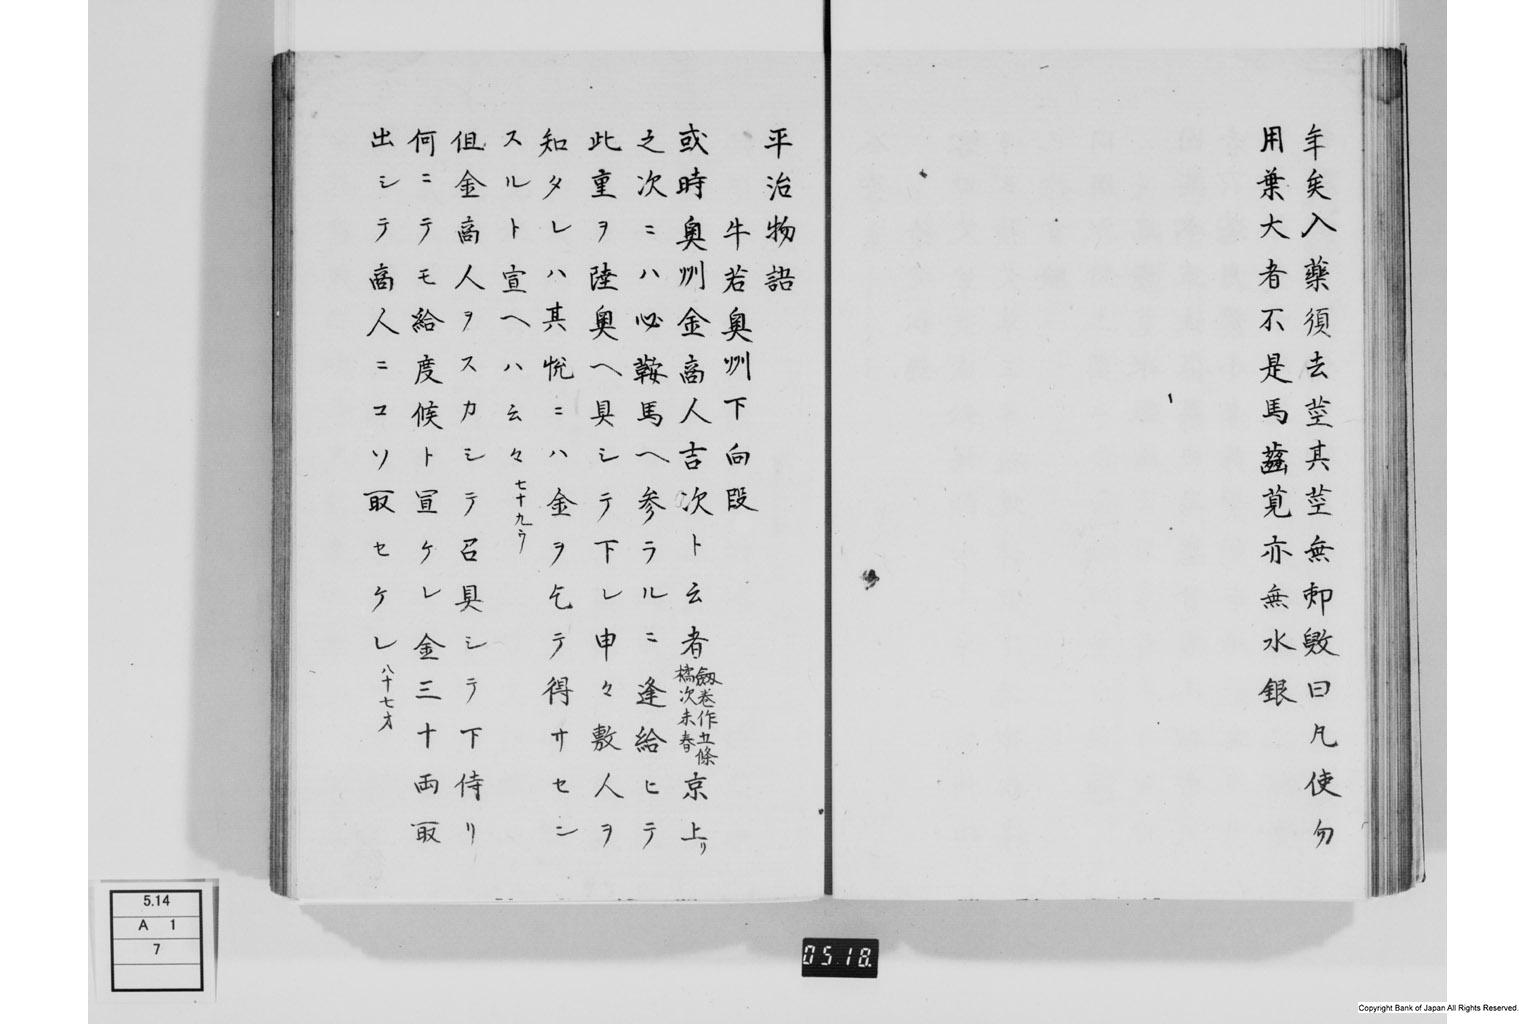 年矣入藥須去莖其莖無郊斆曰凡使勿
用葉大者不是馬齒莧亦無水銀
平治物語
牛若奥州下向段
或時奥州金商人吉次ト云者劔巻作五條橘次末春京上リ
之次ニハ必鞍馬ヘ参ラルニ逢給ヒテ
此童ヲ陸奥ヘ具シテ下レ申々敷人ヲ
知タレハ其悦ニハ金ヲ乞テ得サセン
スルト宣ヘハ云々七十九ウ
但金商人ヲスカシテ召具シテ下侍リ
何ニテモ給度候ト宣ケレ金三十両取
出シテ商人ニコソ取セケレ八十七才
5.14
A 1
7
0518.
Copyright Bank of Japan All Rights Reserved.